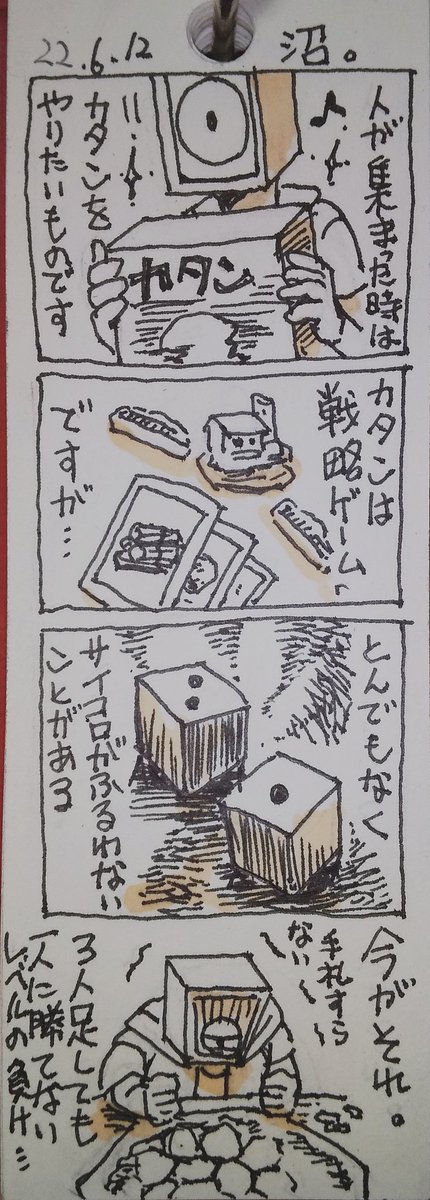 22.6.12
沼。
人が集まった時は
カタンを
やりたいものです
カタン
カタンは
戦略ゲーム
ですが…
とんでもなく
サイコロがふるわない
ことがある
今がそれ。
手札すら
ない〜
3人足しても
一人に勝てない
レベルの負け…